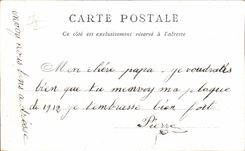 CARTE POSTALE
Ce côté est exclusivement réservé à l'adresse
Mon chère papa. je voudrais
bien que tu m'envoy ma plaque
de 1912 je t'embrasse bien fort
Pierre
envoy nous tons adresse